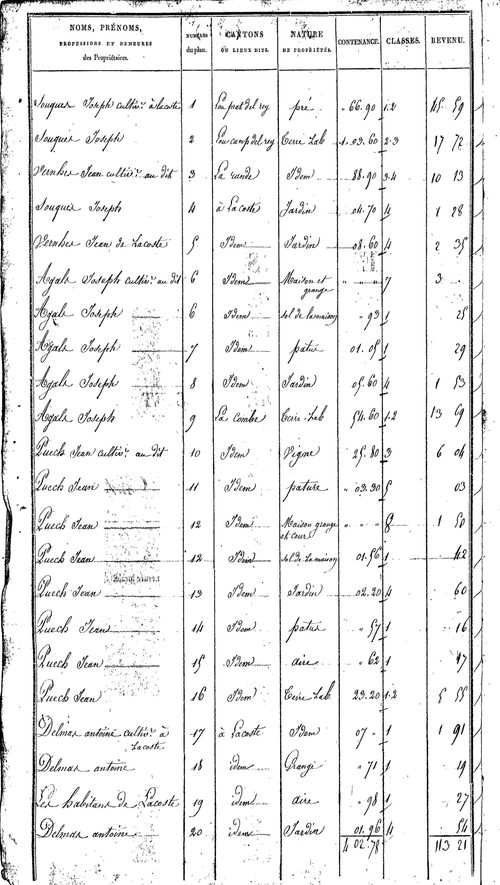 NOMS, PRÉNOMS, PROFESSIONS ET DEMEURES des Propriétaires. | NUMÉROS du plan. | CANTONS OU LIEUX DITS. | NATURE DE PROPRIÉTÉS. | CONTENANCE. | CLASSES. | REVENU.
Souques Joseph cultivr. à lacoste 1 Lou prat del rey pré " 66.90 1.2 45 59
Souques Joseph 2 Lou camp del rey Terre Lab 1.03.60 2.3 17 72
Vernhes Jean cultivr. au dit 3 La rande Idem 88.90 3.4 10 13
Souques Joseph 4 à Lacoste Jardin 04.70 4 1 28
Vernhes Jean de Lacoste 5 Idem Jardin 08.60 4 2 35
Agals Joseph cultivr. au dit 6 Idem Maison et grange " " " 7 3
Agals Joseph 6 Idem sol de la maison " 93 1 25
Agals Joseph 7 Idem patus 01.05 1 29
Agals Joseph 8 Idem Jardin 05.60 4 1 53
Agals Joseph 9 La Combe Terre Lab 54.60 1.2 13 69
Puech Jean cultivr. au dit 10 Idem Vigne 25.80 3 6 04
Puech Jean 11 Idem pature " 03.30 5 03
Puech Jean 12 Idem Maison grange et cour " " " 8 1 50
Puech Jean 12 Idem sol de la maison 01.56 1 42
Puech Jean 13 Idem Jardin 02.20 4 60
Puech Jean 14 Idem patus " 57 1 16
Puech Jean 15 Idem aire " 62 1 17
Puech Jean 16 Idem Terre Lab 23.20 1.2 5 55
Delmas antoine cultivr. à Lacoste 17 à Lacoste Idem 07 " 1 1 91
Delmas antoine 18 idem Grange " 71 1 19
Les habitans de Lacoste 19 idem aire " 98 1 27
Delmas antoine 20 idem Jardin 01.96 4 54
4 02.78 113 21